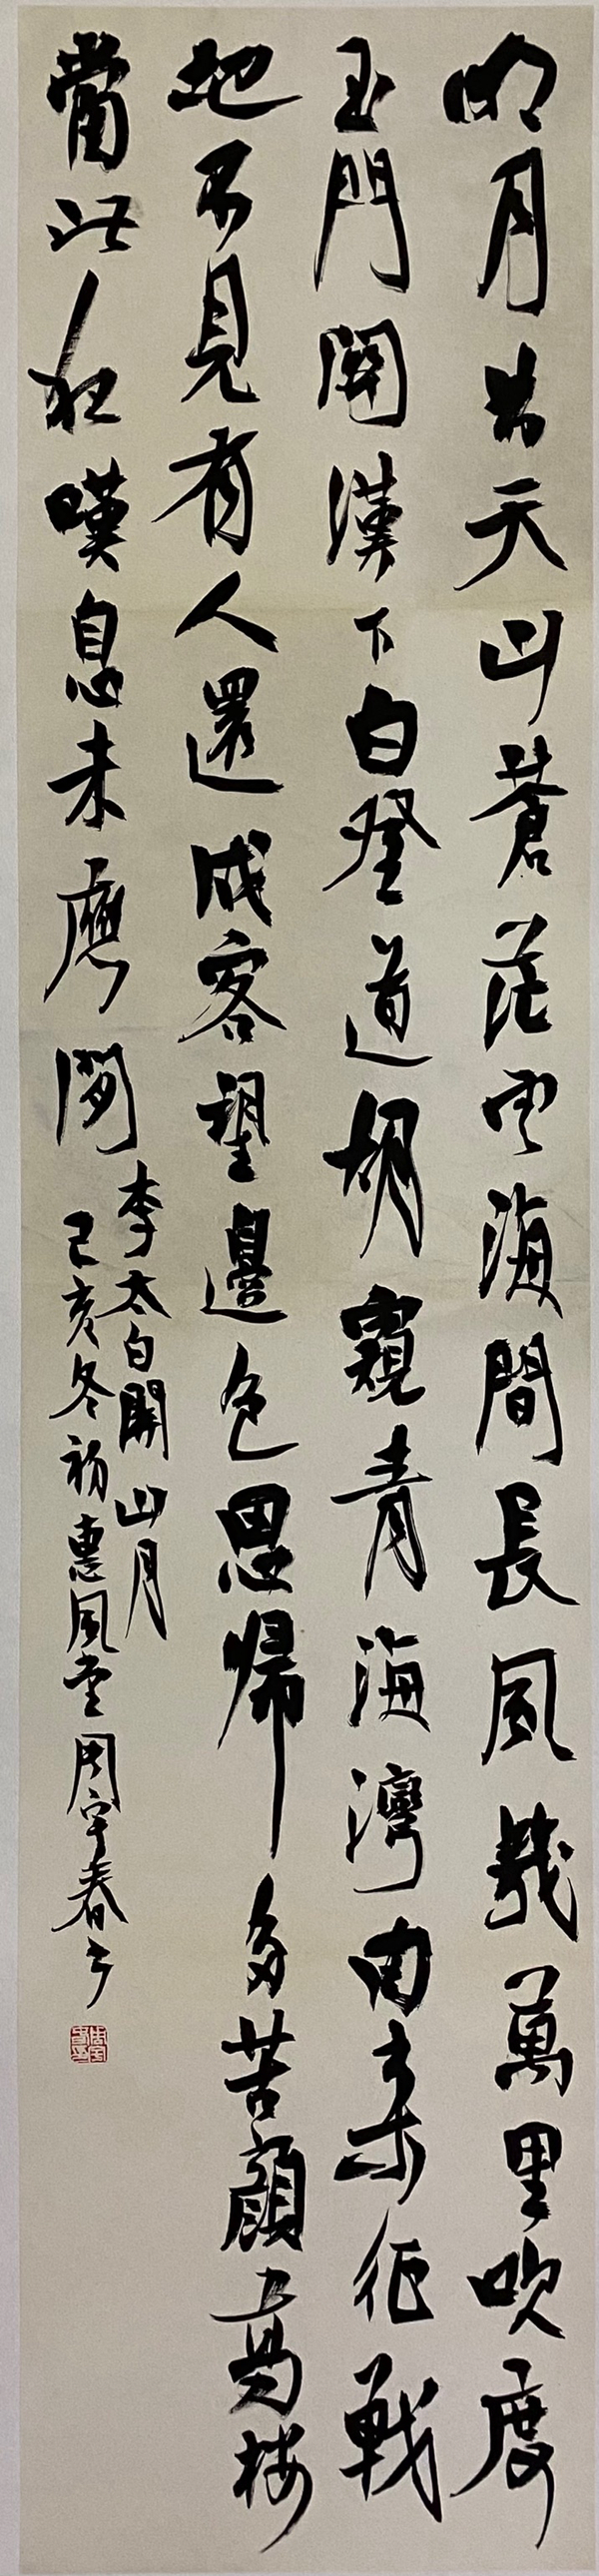 明月出天山蒼茫雲海間長風幾萬里吹度
玉門關漢下白登道胡窺青海灣由來征戰
地不見有人還戍客望邊色思歸多苦顏高樓
當此夜嘆息未應閒
李太白關山月
己亥冬初惠風堂周宇春書